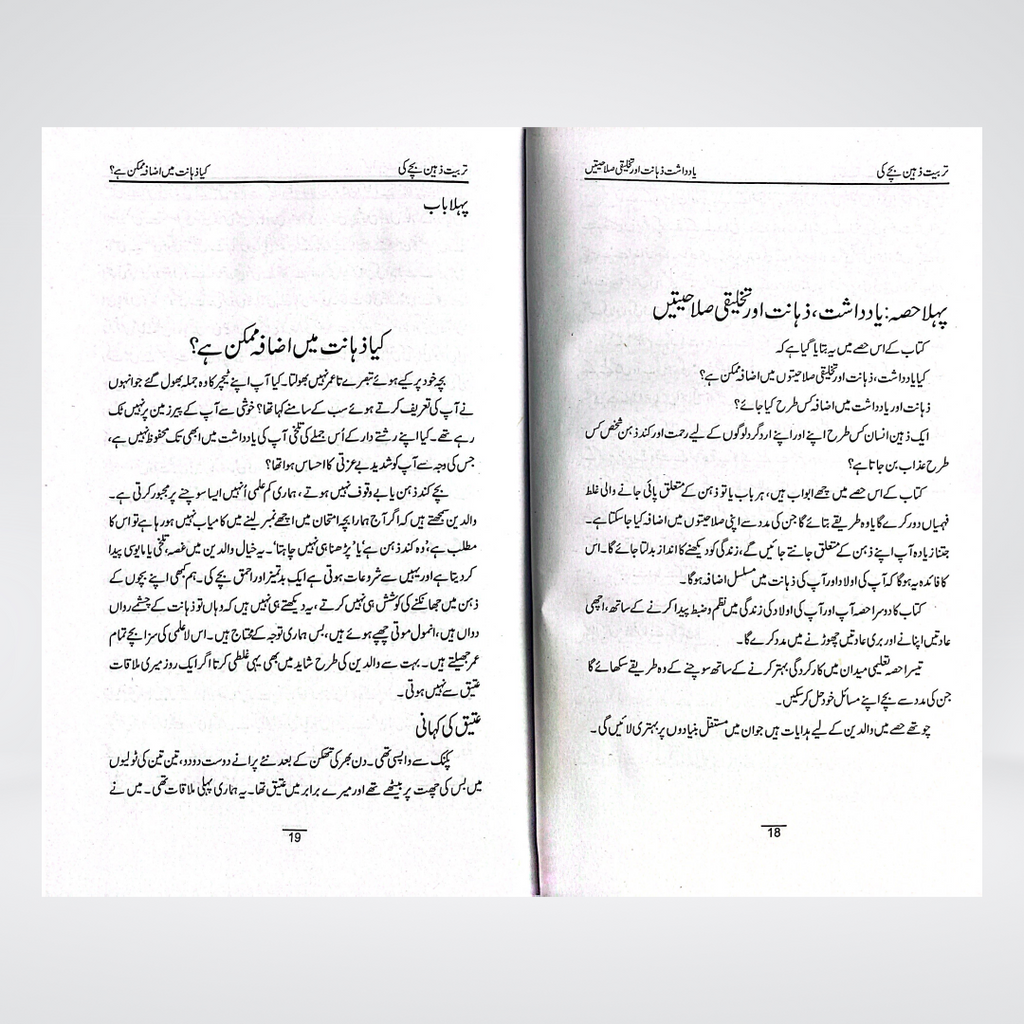 تربیت ذہین بچے کی
یادداشت ذہانت اور تخلیقی صلاحیتیں
پہلا حصہ: یادداشت، ذہانت اور تخلیقی صلاحیتیں
کتاب کے اس حصے میں یہ بتایا گیا ہے کہ
کیا یادداشت، ذہانت اور تخلیقی صلاحیتوں میں اضافہ ممکن ہے؟
ذہانت اور یادداشت میں اضافہ کس طرح کیا جائے؟
ایک ذہین انسان کس طرح اپنے اور اپنے ارد گرد لوگوں کے لیے رحمت اور کند ذہن شخص کس
طرح عذاب بن جاتا ہے؟
کتاب کے اس حصے میں چھے ابواب ہیں، ہر باب یا تو ذہن کے متعلق پائی جانے والی غلط
فہمیاں دور کرے گا یا وہ طریقے بتائے گا جن کی مدد سے اپنی صلاحیتوں میں اضافہ کیا جا سکتا ہے۔
جتنا زیادہ آپ اپنے ذہن کے متعلق جانتے جائیں گے، زندگی کو دیکھنے کا انداز بدلتا جائے گا۔ اس
کا فائدہ یہ ہوگا کہ آپ کی اولاد اور آپ کی ذہانت میں مسلسل اضافہ ہوگا۔
کتاب کا دوسرا حصہ آپ اور آپ کی اولاد کی زندگی میں نظم و ضبط پیدا کرنے کے ساتھ، اچھی
عادتیں اپنانے اور بری عادتیں چھوڑنے میں مدد کرے گا۔
تیسرا حصہ تعلیمی میدان میں کارکردگی بہتر کرنے کے ساتھ سوچنے کے وہ طریقے سکھائے گا
جن کی مدد سے بچے اپنے مسائل خود حل کر سکیں۔
چوتھے حصے میں والدین کے لیے ہدایات ہیں جو ان میں مستقل بنیادوں پر بہتری لائیں گی۔
18
تربیت ذہین بچے کی
کیا ذہانت میں اضافہ ممکن ہے؟
پہلا باب
کیا ذہانت میں اضافہ ممکن ہے؟
بچہ خود پر کیے ہوئے تبصرے تا عمر نہیں بھولتا۔ کیا آپ اپنے ٹیچر کا وہ جملہ بھول گئے جو انہوں
نے آپ کی تعریف کرتے ہوئے سب کے سامنے کہا تھا؟ خوشی سے آپ کے پیر زمین پر نہیں ٹک
رہے تھے۔ کیا اپنے رشتے دار کے اُس جملے کی تلخی آپ کی یادداشت میں ابھی تک محفوظ نہیں ہے،
جس کی وجہ سے آپ کو شدید بے عزتی کا احساس ہوا تھا؟
بچے کند ذہن یا بے وقوف نہیں ہوتے، ہماری کم علمی اُنھیں ایسا سوچنے پر مجبور کرتی ہے۔
والدین سمجھتے ہیں کہ اگر آج ہمارا بچہ امتحان میں اچھے نمبر لینے میں کامیاب نہیں ہو رہا ہے تو اس کا
مطلب ہے، ’وہ کند ذہن ہے‘ یا ’پڑھنا ہی نہیں چاہتا‘۔ یہ خیال والدین میں غصہ، تلخی یا مایوسی پیدا
کر دیتا ہے اور یہیں سے شروعات ہوتی ہے ایک بدتمیز اور احمق بچے کی۔ ہم کبھی اپنے بچوں کے
ذہن میں جھانکنے کی کوشش ہی نہیں کرتے، یہ دیکھتے ہی نہیں ہیں کہ وہاں تو ذہانت کے چشمے رواں
دواں ہیں، انمول موتی چھپے ہوئے ہیں، بس ہماری توجہ کے محتاج ہیں۔ اس لا علمی کی سزا بچے تمام
عمر جھیلتے ہیں۔ بہت سے والدین کی طرح شاید میں بھی یہی غلطی کرتا اگر ایک روز میری ملاقات
عتیق سے نہیں ہوتی۔
عتیق کی کہانی
پکنک سے واپسی تھی۔ دن بھر کی تھکن کے بعد نئے پرانے دوست دو دو، تین تین کی ٹولیوں
میں بس کی چھت پر بیٹھے تھے اور میرے برابر میں عتیق تھا۔ یہ ہماری پہلی ملاقات تھی۔ میں نے
19